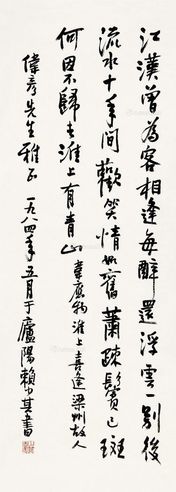 江漢曾為客相逢每醉還浮雲一別後
流水十年間歡笑情如舊蕭疎鬢已斑
何因不歸去淮上有青山 韋應物淮上喜逢梁州故人
偉彥先生雅正 一九八四年五月于廬陽賴少其書